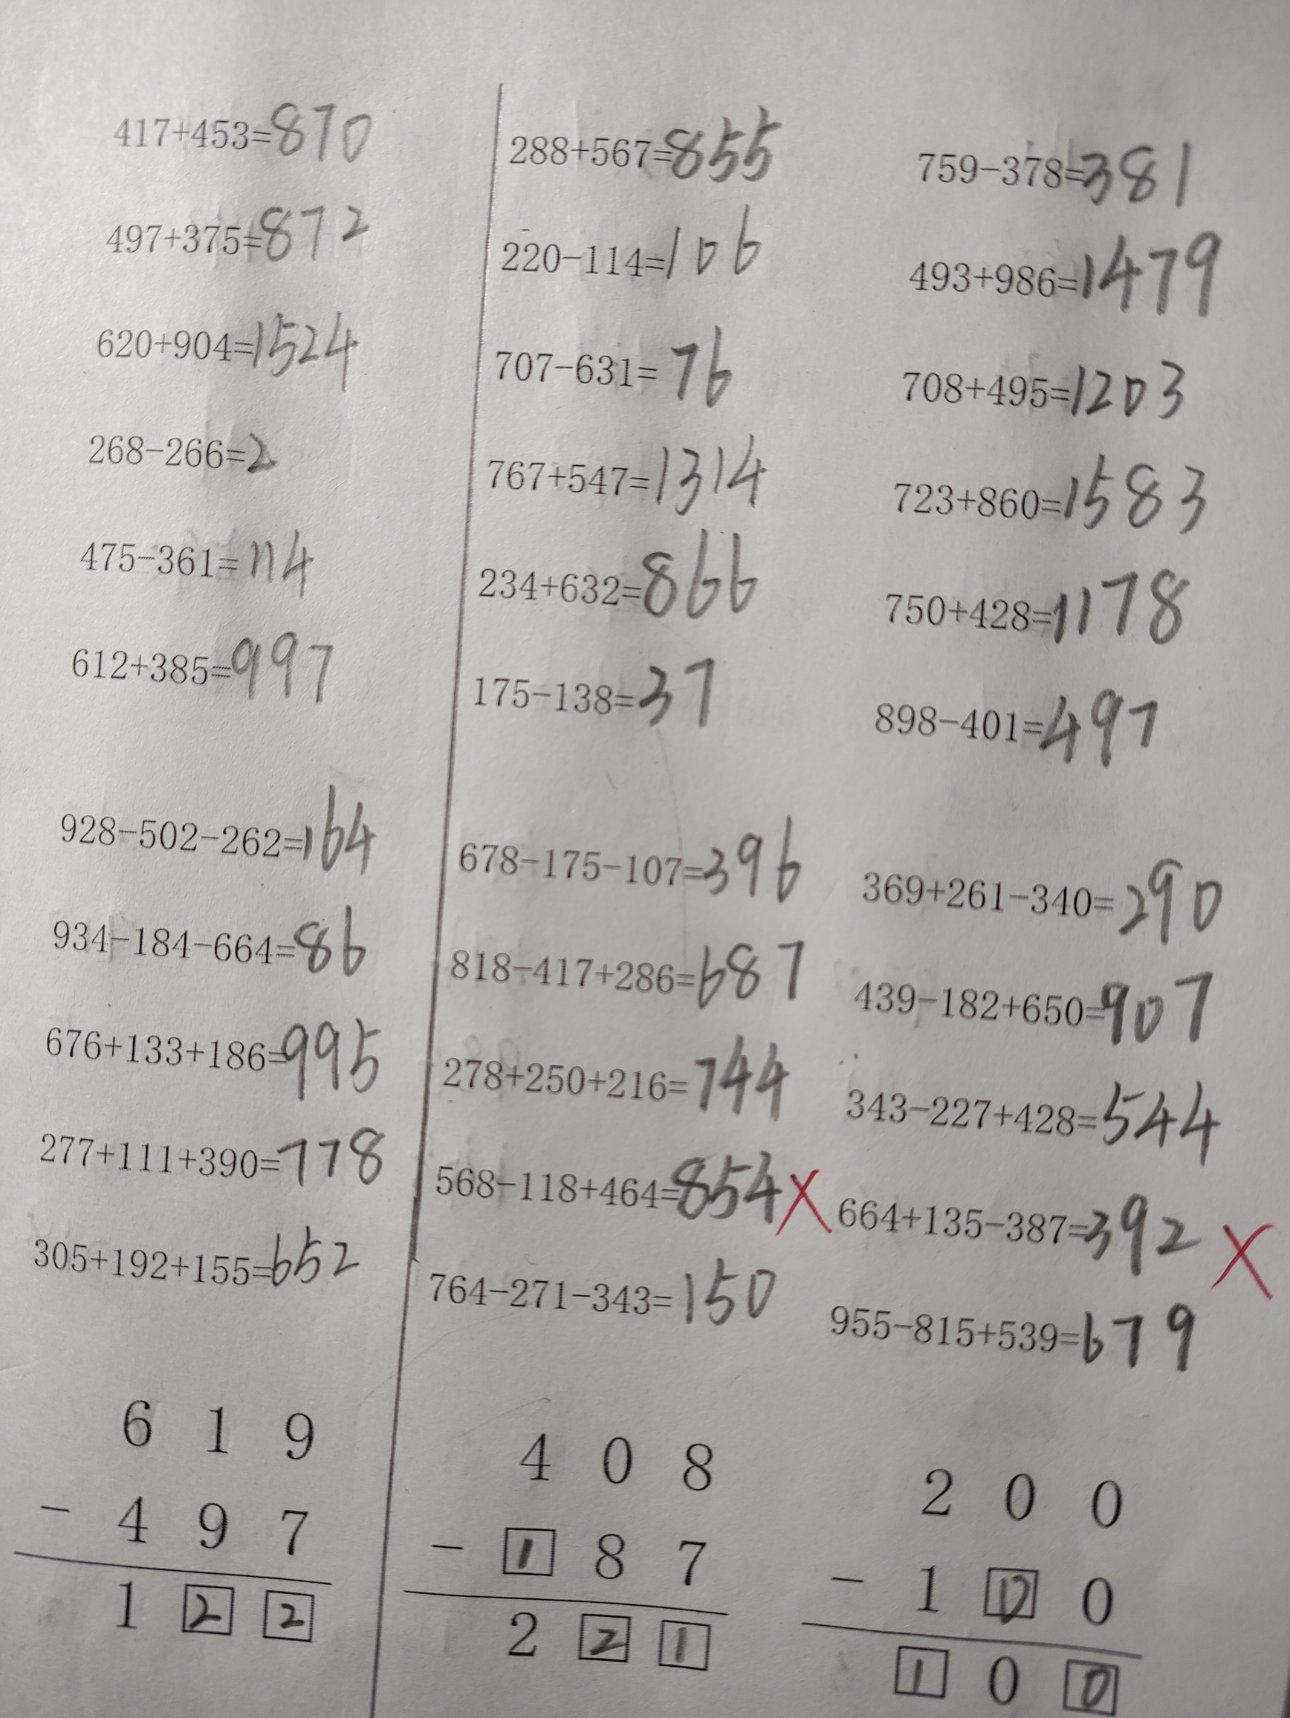 417+453=870
497+375=872
620+904=1524
268-266=2
475-361=114
612+385=997
928-502-262=164
934-184-664=86
676+133+186=995
277+111+390=778
305+192+155=652
6 1 9
- 4 9 7
1 2 2
288+567=855
220-114=106
707-631=76
767+547=1314
234+632=866
175-138=37
678-175-107=396
818-417+286=687
278+250+216=744
568-118+464=854 X
764-271-343=150
4 0 8
- 1 8 7
2 2 1
759-378=381
493+986=1479
708+495=1203
723+860=1583
750+428=1178
898-401=497
369+261-340=290
439-182+650=907
343-227+428=544
664+135-387=392 X
955-815+539=679
2 0 0
- 1 0 0
1 0 0